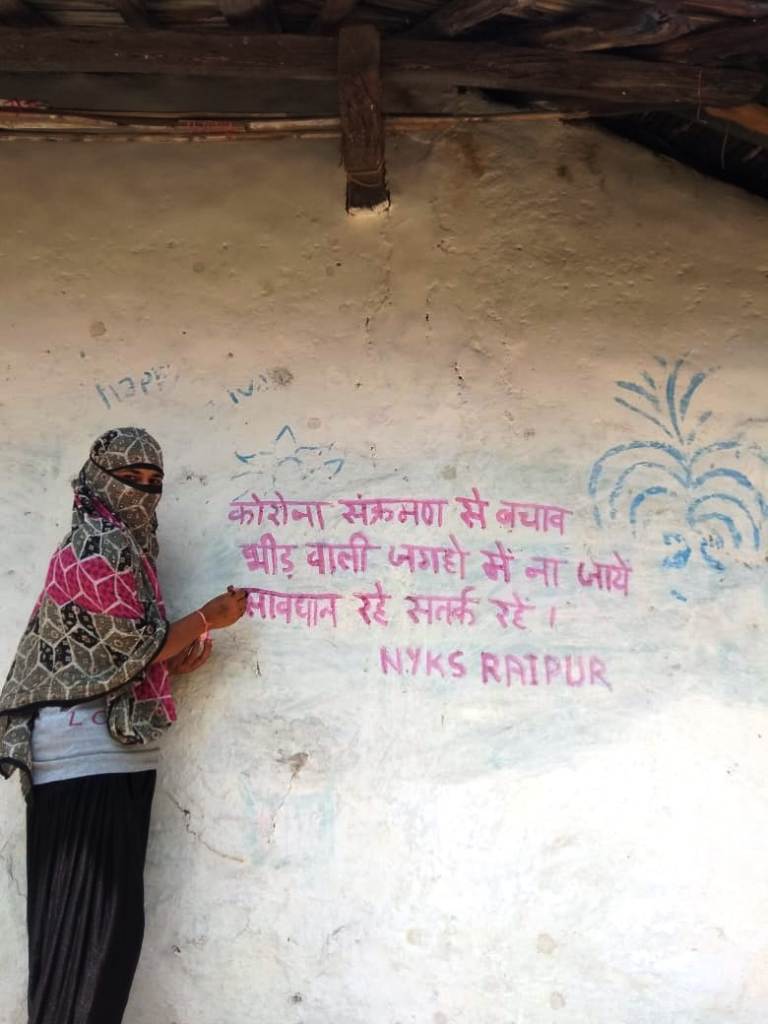 HAPPY
कोरोना संक्रमण से बचाव
भीड़ वाली जगहो में ना जाये
सावधान रहे सतर्क रहें।
NYKS RAIPUR